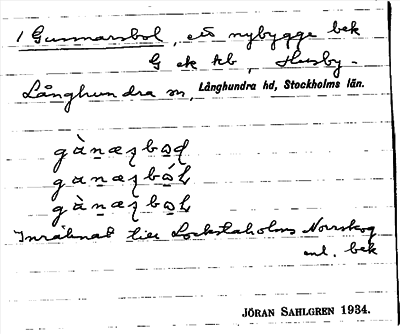 1 Gunnarsbol, ett nybygge bek
G ek kb, Husby-
Långhundra sn, Långhundra hd, Stockholms län.
gànæʒbo̱d
ganæʒbó̱L
gànæʒbo̱L
Inräknad till Lockstaholms Norrskog
enl. bek
JÖRAN SAHLGREN 1934.